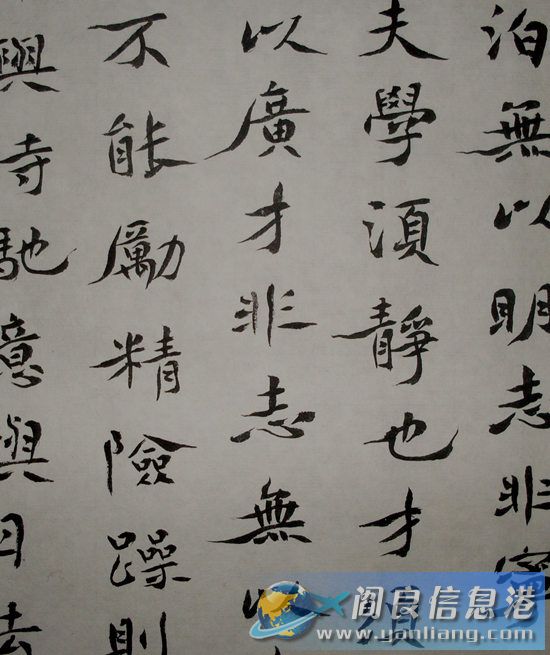 泊無以明志非寧
夫學湏靜也才湏
以廣才非志無以
不能勵精險躁則
與時馳意與日去
阎良信息港
www.yanliang.com